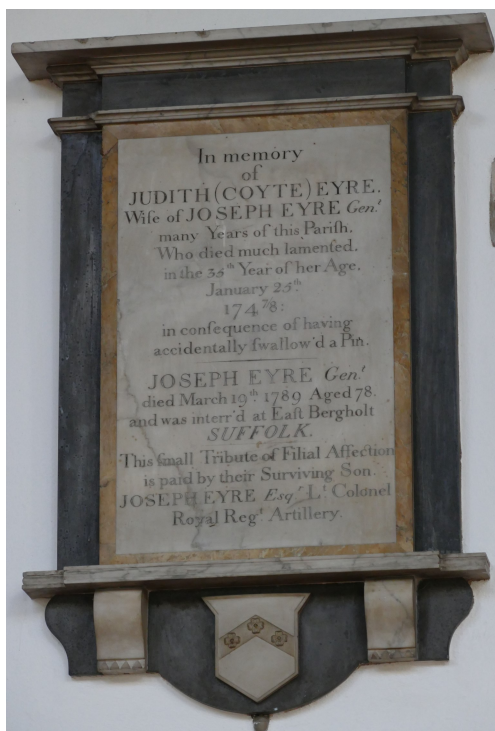 In memory
of
JUDITH (COYTE) EYRE.
Wife of JOSEPH EYRE Genᵗ
many Years of this Pariſh.
Who died much lamenſed.
in the 35ᵗʰ Year of her Age.
January 25ᵗʰ
174 7/8:
in conſequence of having
accidentally ſwallow'd a Pin.
JOSEPH EYRE Genᵗ
died March 19ᵗʰ 1789 Aged 78.
and was interr'd at Eaſt Bergholt
SUFFOLK.
This ſmall Tribute of Filial Affection
is paid by their Surviving Son.
JOSEPH EYRE Esqʳ Lᵗ Colonel
Royal Regᵗ Artillery.